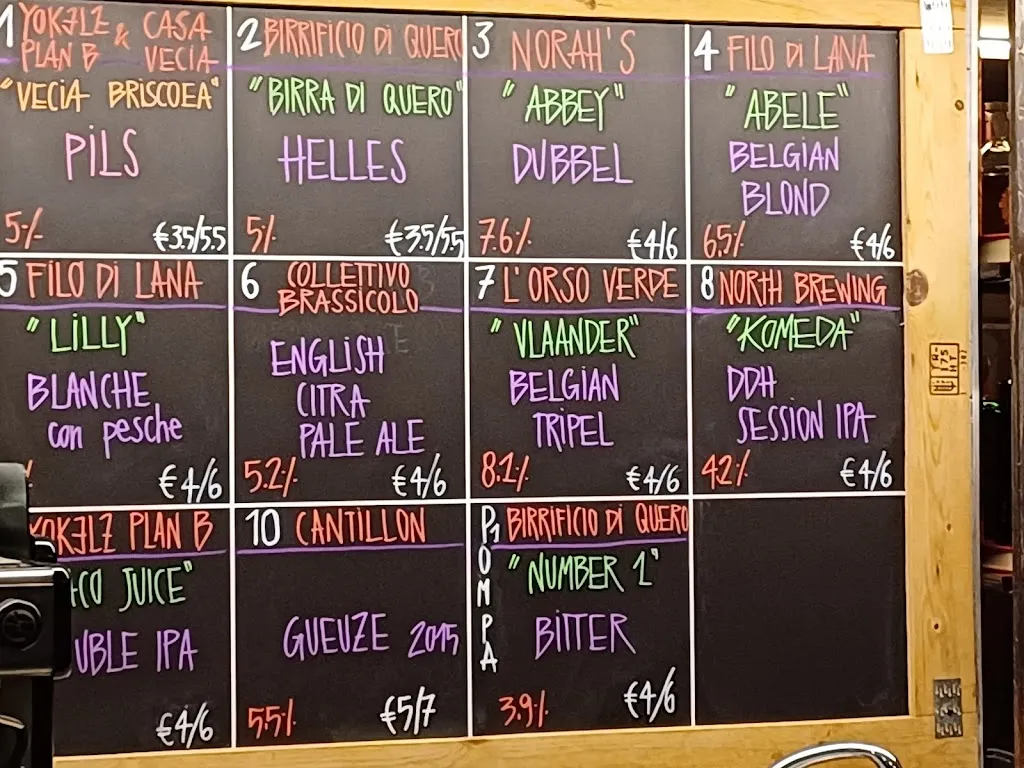 1 YOKELZ & CASA
PLAN B VECIA
"VECIA BRISCOEA"
PILS
5% €3.5/5.5
2 BIRRIFICIO DI QUERO
"BIRRA DI QUERO"
HELLES
5% €3.5/5.5
3 NORAH'S
"ABBEY"
DUBBEL
7.6% €4/6
4 FILO DI LANA
"ABELE"
BELGIAN
BLOND
6.5% €4/6
5 FILO DI LANA
"LILLY"
BLANCHE
con pesche
€4/6
6 COLLETTIVO
BRASSICOLO
ENGLISH
CITRA
PALE ALE
5.2% €4/6
7 L'ORSO VERDE
"VLAANDER"
BELGIAN
TRIPEL
8.1% €4/6
8 NORTH BREWING
"KOMEDA"
DDH
SESSION IPA
4.2% €4/6
YOKELZ PLAN B
JUICE"
UBLE IPA
€4/6
10 CANTILLON
GUEUZE 2015
5.5% €5/7
POMPA 1 BIRRIFICIO DI QUERO
"NUMBER 1"
BITTER
3.9% €4/6